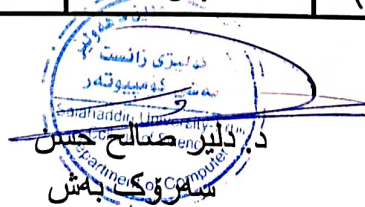 کۆلێژی زانست
بەشی کۆمپیوتەر
Salahaddin University
College of Science
Department of Computer
د. دلێر صالح حسن
سەرۆک بەش